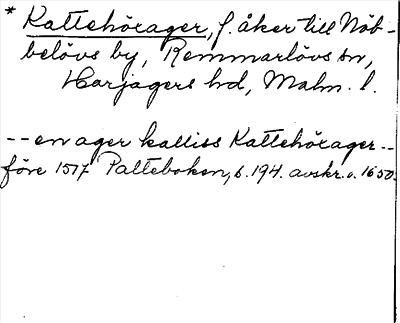 * Kattehörager, f. åker till Nöb-
belövs by, Remmarlövs sn,
Harjagers hd, Malm. l.
-- en ager kalliss Kattehörager --
före 1517 Palteboken, s. 194. avskr. o. 1650.